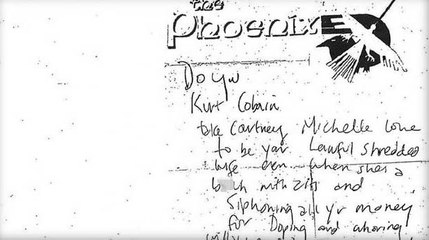 the
Phoenix
Do you
Kurt Cobain
take Cartney Michelle Love
to be your Lawful shredded
wife even when shes a
b ch with zits and
siphoning all yr money
for Doping and whoring